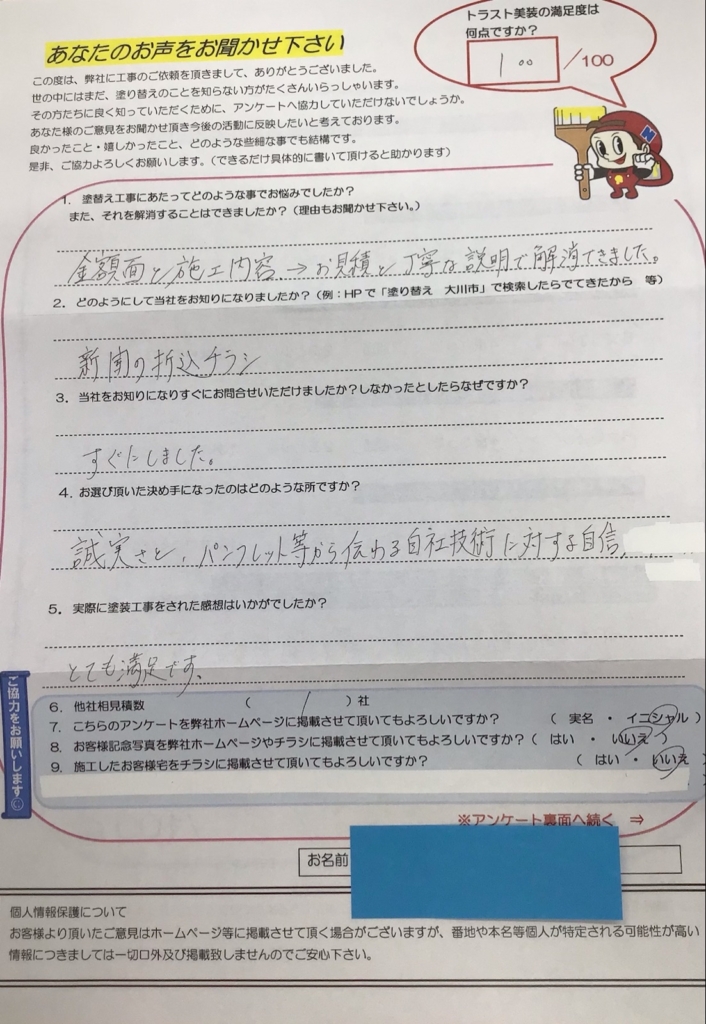 トラスト美装の満足度は
何点ですか？
100／100
あなたのお声をお聞かせ下さい
この度は、弊社に工事のご依頼を頂きまして、ありがとうございました。
世の中にはまだ、塗り替えのことを知らない方がたくさんいらっしゃいます。
その方たちに良く知っていただくために、アンケートへ協力していただけないでしょうか。
あなた様のご意見をお聞かせ頂き今後の活動に反映したいと考えております。
良かったこと・嬉しかったこと、どのような些細な事でも結構です。
是非、ご協力よろしくお願いします。（できるだけ具体的に書いて頂けると助かります）
N
1. 塗替え工事にあたってどのような事でお悩みでしたか？
また、それを解消することはできましたか？（理由もお聞かせ下さい。）
金額面と施工内容→お見積と丁寧な説明で解消できました。
2. どのようにして当社をお知りになりましたか？（例：HPで「塗り替え 大川市」で検索したらでてきたから 等）
新聞の折込チラシ
3. 当社をお知りになりすぐにお問合せいただけましたか？しなかったとしたらなぜですか？
すぐにしました。
4. お選び頂いた決め手になったのはどのような所ですか？
誠実さと、パンフレット等から伝わる自社技術に対する自信、……
5. 実際に塗装工事をされた感想はいかがでしたか？
とても満足です。
ご協力をお願いします
6. 他社相見積数 （ 1 ）社
7. こちらのアンケートを弊社ホームページに掲載させて頂いてもよろしいですか？ （ 実名 ・ イニシャル ）
8. お客様記念写真を弊社ホームページやチラシに掲載させて頂いてもよろしいですか？（ はい ・ いいえ ）
9. 施工したお客様宅をチラシに掲載させて頂いてもよろしいですか？ （ はい ・ いいえ ）
※アンケート裏面へ続く ⇒
お名前
個人情報保護について
お客様より頂いたご意見はホームページ等に掲載させて頂く場合がございますが、番地や本名等個人が特定される可能性が高い
情報につきましては一切口外及び掲載致しませんのでご安心下さい。